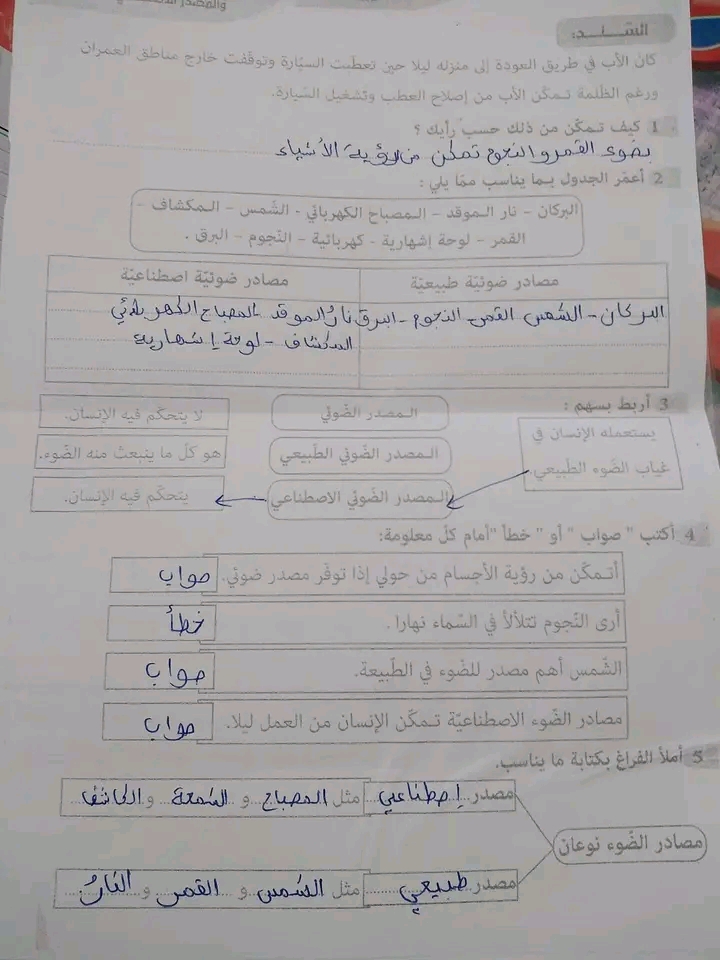 السّند:
كان الأب في طريق العودة إلى منزله ليلا حين تعطّبت السيّارة وتوقّفت خارج مناطق العمران
ورغم الظّلمة تمكّن الأب من إصلاح العطب وتشغيل السّيارة.
1 كيف تمكّن من ذلك حسب رأيك ؟
بضوء القمر والنجوم تمكن من رؤية الأشياء
2 أعمّر الجدول بما يناسب ممّا يلي :
البركان - نار الموقد - المصباح الكهربائي - الشّمس - المكشاف -
القمر - لوحة إشهارية - كهربائية - النّجوم - البرق .
مصادر ضوئيّة طبيعيّة مصادر ضوئيّة اصطناعيّة
البركان - الشمس القمر - النجوم - البرق نارُ الموقد المصباح الكهربائي
المكشاف - لوحة إشهارية
3 أربط بسهم :
يستعمله الإنسان في
غياب الضّوء الطّبيعي.
المصدر الضّوئي
لا يتحكّم فيه الإنسان.
المصدر الضّوئي الطّبيعي
هو كلّ ما ينبعث منه الضّوء.
المصدر الضّوئي الاصطناعي
يتحكّم فيه الإنسان.
4 أكتب " صواب " أو " خطأ " أمام كلّ معلومة:
أتمكّن من رؤية الأجسام من حولي إذا توفّر مصدر ضوئي. صواب
أرى النّجوم تتلألأ في السّماء نهارا . خطأ
الشّمس أهم مصدر للضّوء في الطّبيعة. صواب
مصادر الضّوء الاصطناعيّة تمكّن الإنسان من العمل ليلا. صواب
5 أملأ الفراغ بكتابة ما يناسب.
مصدر إصطناعي مثل المصباح و الشمعة و الكاشف
مصادر الضّوء نوعان
مصدر طبيعي مثل الشمس و القمر و النارُ